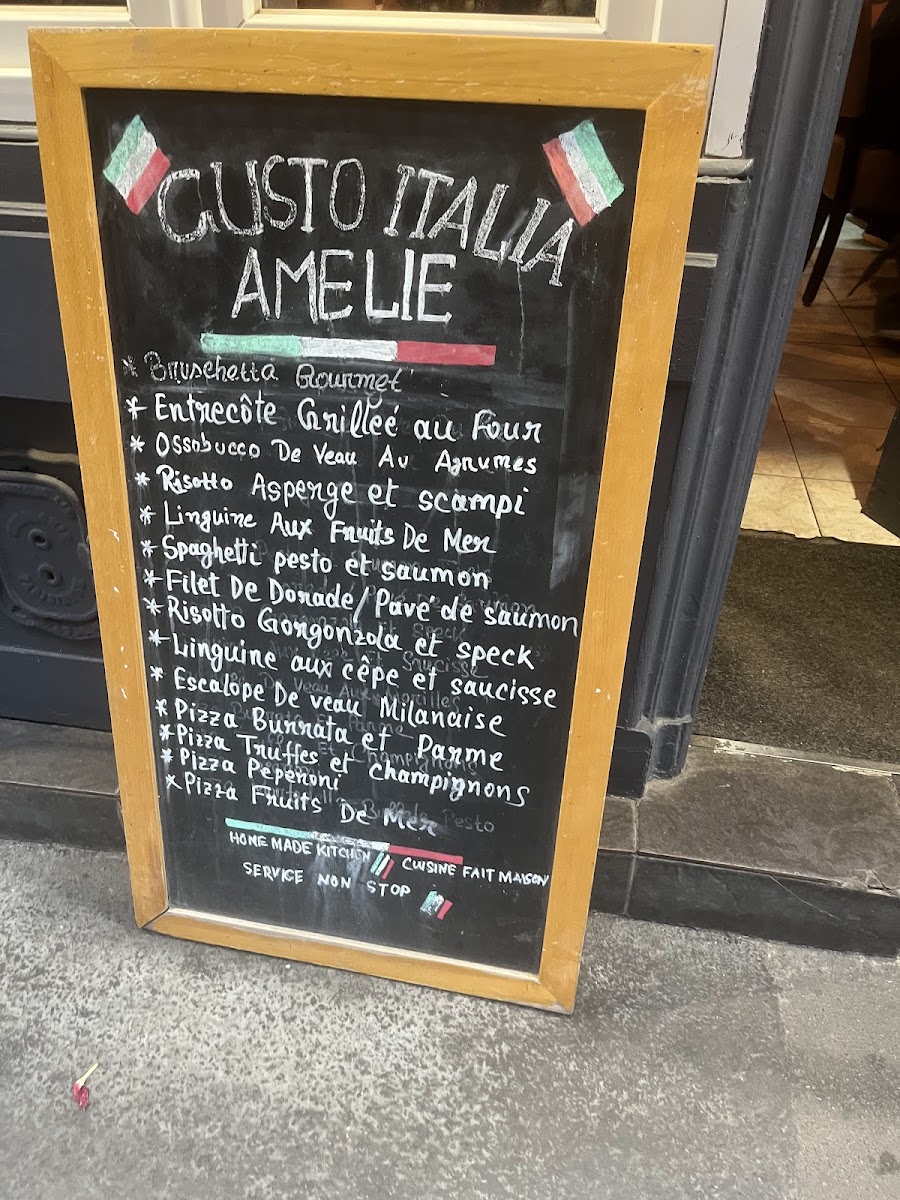 GUSTO ITALIA
AMELIE
* Bruschetta Gourmet
* Entrecôte Grilleé au Four
* Ossobucco De Veau Au Agrumes
* Risotto Asperge et scampi
* Linguine Aux Fruits De Mer
* Spaghetti pesto et saumon
* Filet De Dorade/Pavé de saumon
* Risotto Gorgonzola et speck
* Linguine aux cêpe et saucisse
* Escalope De veau Milanaise
* Pizza Burrata et Parme
* Pizza Truffes et Champignons
* Pizza Peperoni
* Pizza Fruits De Mer
HOME MADE KITCHEN CUISINE FAIT MAISON
SERVICE NON STOP